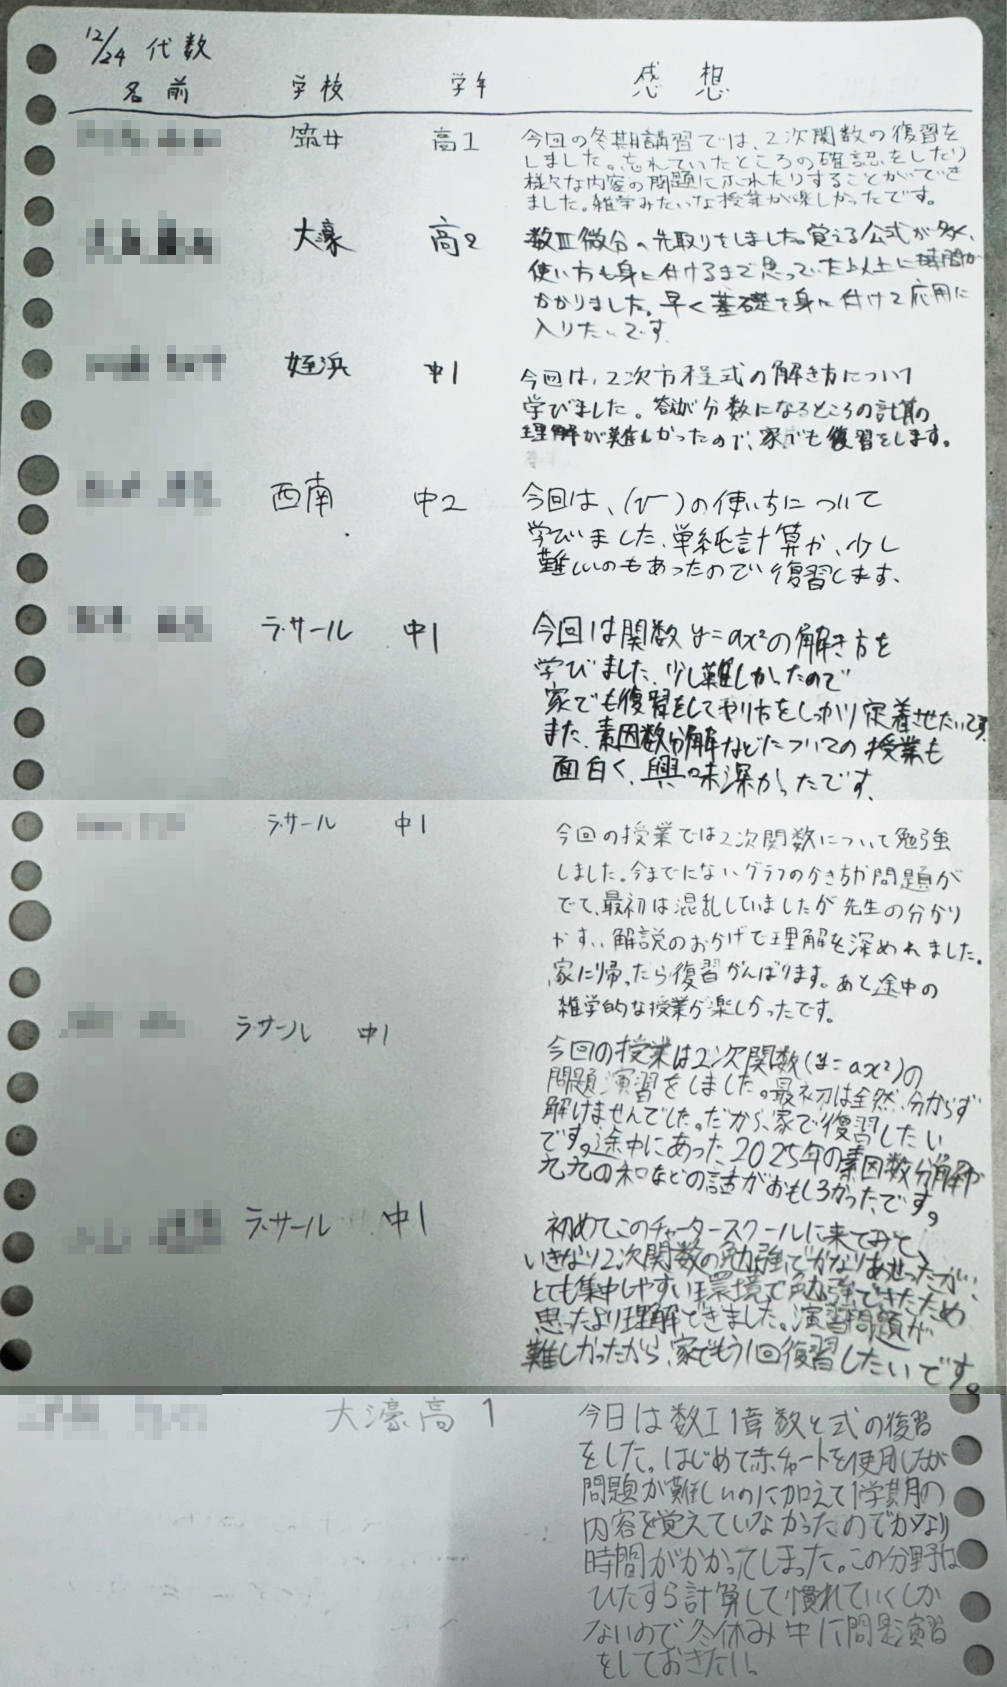 12/24 代数
名前 学校 学年 感想
筑女 高1 今回の冬期講習では、2次関数の復習を
しました。忘れていたところの確認をしたり
様々な内容の問題にふれたりすることができ
ました。雑学みたいな授業が楽しかったです。
大濠 高2 数Ⅲ微分の先取りをしました。覚える公式が多く、
使い方も身に付けるまで思っていた以上に時間が
かかりました。早く基礎を身に付けて応用に
入りたいです。
姪浜 中1 今回は、2次方程式の解き方について
学びました。答が分数になるところの計算の
理解が難しかったので、家でも復習をします。
西南 中2 今回は、(√)の使い方について
学びました。単純計算が、少し
難しいのもあったので復習します。
ラ・サール 中1 今回は関数y=ax²の解き方を
学びました。少し難しかったので
家でも復習をしてやり方をしっかり定着させたいです。
また、素因数分解などについての授業も
面白く、興味深かったです。
ラ・サール 中1 今回の授業では2次関数について勉強
しました。今までにないグラフのかき方や問題が
でて、最初は混乱していましたが先生の分かり
やすい解説のおかげで理解を深めれました。
家に帰ったら復習がんばります。あと途中の
雑学的な授業が楽しかったです。
ラ・サール 中1 今回の授業は2次関数(y=ax²)の
問題演習をしました。最初は全然、分からず
解けませんでした。だから、家で復習したい
です。途中にあった2025年の素因数分解や
九九の和などの話がおもしろかったです。
ラ・サール 中1 初めてこのチャータースクールに来てみて
いきなり2次関数の勉強でかなりあせったが、
とても集中しやすい環境で勉強できたため
思ったより理解できました。演習問題が
難しかったから、家でもう1回復習したいです。
大濠高 1 今日は数Ⅰ1章数と式の復習
をした。はじめて赤チャートを使用したが
問題が難しいのに加えて1学期の
内容を覚えていなかったのでかなり
時間がかかってしまった。この分野は
ひたすら計算して慣れていくしか
ないので冬休み中に問題演習
をしておきたい。